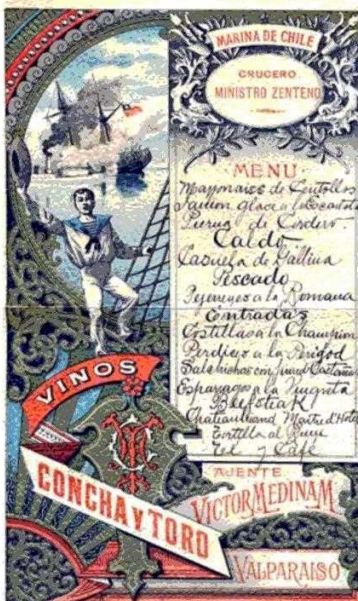 MARINA DE CHILE
CRUCERO
MINISTRO ZENTENO
MENU
Mayonaise de Centollas
Jamon glacé a la
Pierna de Cordero
Caldo
Casuela de Gallina
Pescado
Pejerreyes a la Romana
Entradas
Costillas a la Champiñon
Perdices a la Perigod
Salchichas con Castañas
Esparragos a la Vinagreta
Beefsteak
Chateaubriand Maitre d'Hotel
Tortilla al Rum
Té y Café
VINOS
CONCHA Y TORO
AJENTE
VICTOR MEDINA M
VALPARAISO